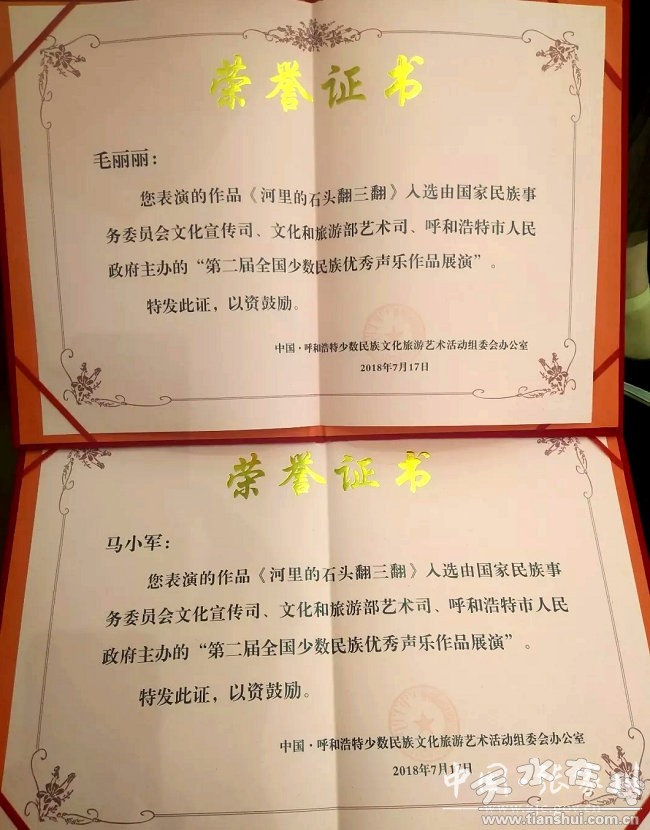 荣誉证书
毛丽丽：
您表演的作品《河里的石头翻三翻》入选由国家民族事
务委员会文化宣传司、文化和旅游部艺术司、呼和浩特市人民
政府主办的“第二届全国少数民族优秀声乐作品展演”。
特发此证，以资鼓励。
中国·呼和浩特少数民族文化旅游艺术活动组委会办公室
2018年7月17日
荣誉证书
马小军：
您表演的作品《河里的石头翻三翻》入选由国家民族事
务委员会文化宣传司、文化和旅游部艺术司、呼和浩特市人民
政府主办的“第二届全国少数民族优秀声乐作品展演”。
特发此证，以资鼓励。
中国·呼和浩特少数民族文化旅游艺术活动组委会办公室
2018年7月17日
www.tianshui.com.cn